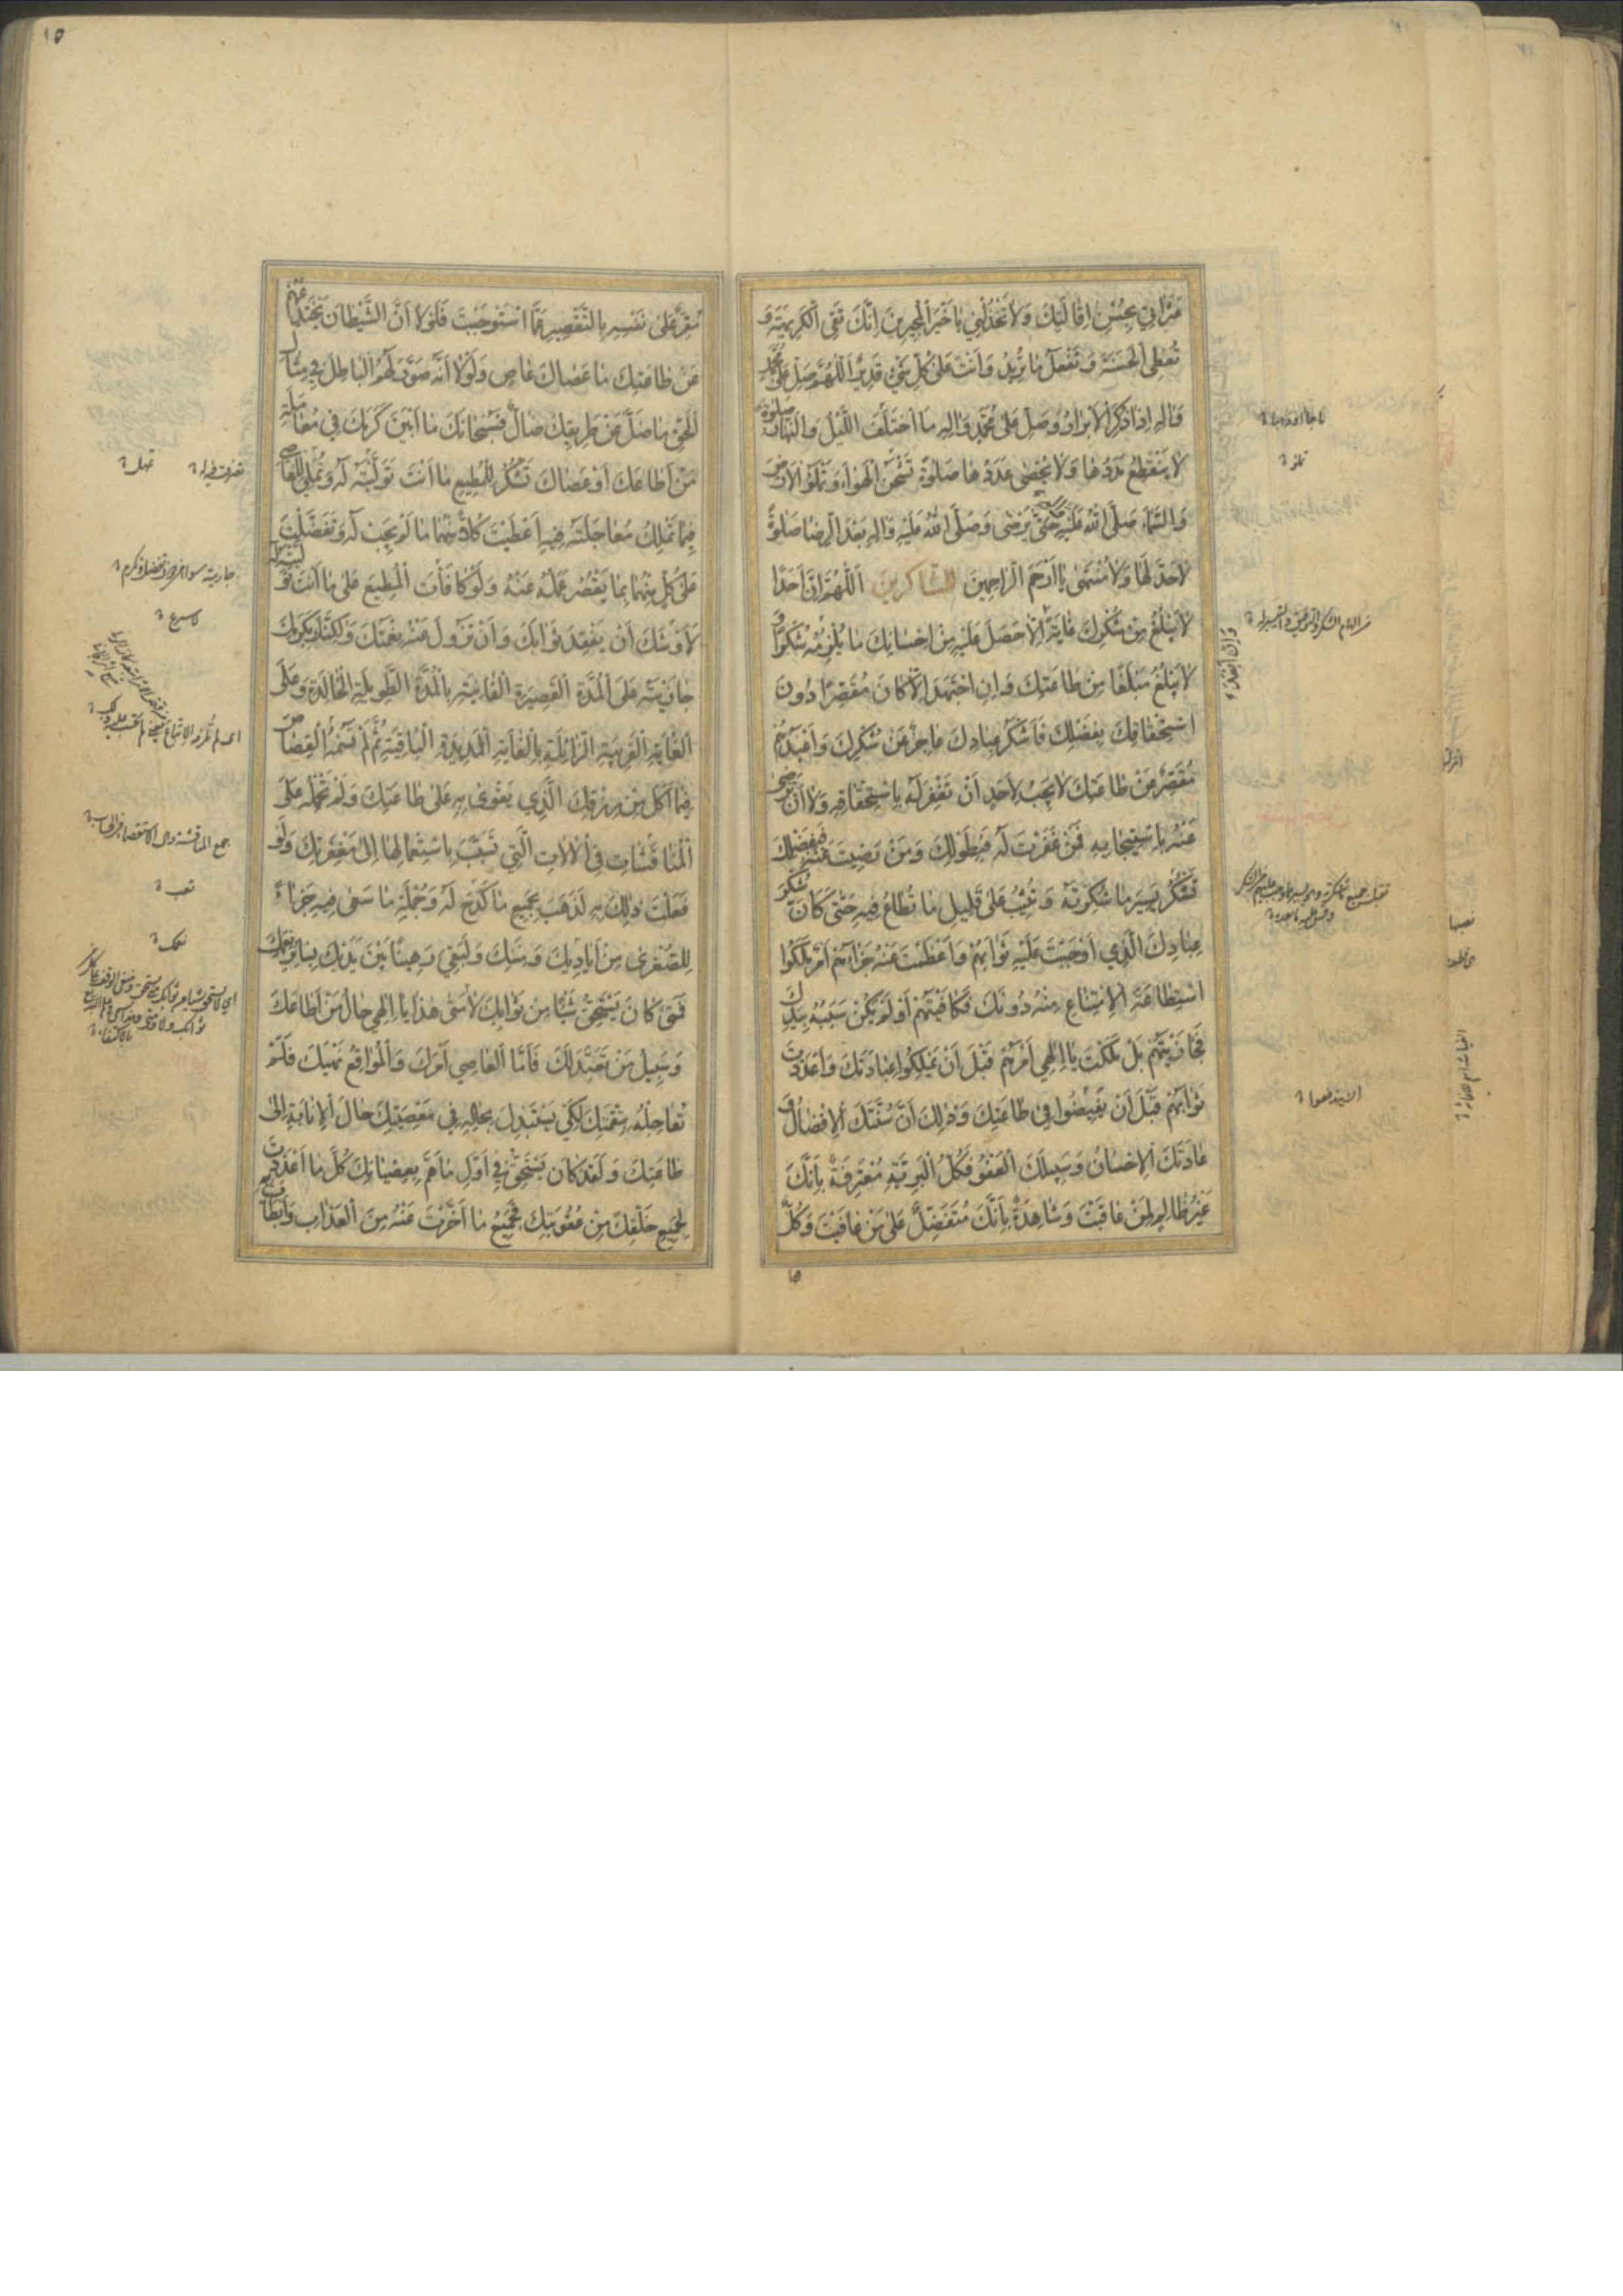 عَثَرَاتِي بِحُسْنِ إِقَالَتِكَ وَلَا تَخْذُلْنِي يَا خَيْرَ الْمُجِيرِينَ إِنَّكَ تَقِي الْكَرِيهَةَ وَ
تُعْطِي الْحَسَنَةَ وَتَفْعَلُ مَا تُرِيدُ وَأَنْتَ عَلَى كُلِّ شَيْءٍ قَدِيرٌ اَللّٰهُمَّ صَلِّ عَلَى مُحَمَّدٍ
وَآلِهِ إِذَا ذُكِرَ الْأَبْرَارُ وَصَلِّ عَلَى مُحَمَّدٍ وَآلِهِ مَا اخْتَلَفَ اللَّيْلُ وَالنَّهَارُ صَلٰوةً
لَا يَنْقَطِعُ مَدَدُهَا وَلَا يُحْصَى عَدَدُهَا صَلٰوةً تَشْحَنُ الْهَوَاءَ وَتَمْلَأُ الْأَرْضَ
وَالسَّمَاءَ صَلَّى اللّٰهُ عَلَيْهِ حَتَّى يَرْضَى وَصَلَّى اللّٰهُ عَلَيْهِ وَآلِهِ بَعْدَ الرِّضَا صَلٰوةً
لَا حَدَّ لَهَا وَلَا مُنْتَهَى يَا أَرْحَمَ الرَّاحِمِينَ الشاكرين اَللّٰهُمَّ إِنَّ أَحَدًا
لَا يَبْلُغُ مِنْ شُكْرِكَ غَايَةً إِلَّا حَصَلَ عَلَيْهِ مِنْ إِحْسَانِكَ مَا يُلْزِمُهُ شُكْرًا وَ
لَا يَبْلُغُ مَبْلَغًا مِنْ طَاعَتِكَ وَإِنِ اجْتَهَدَ إِلَّا كَانَ مُقَصِّرًا دُونَ
اسْتِحْقَاقِكَ بِفَضْلِكَ فَأَشْكَرُ عِبَادِكَ عَاجِزٌ عَنْ شُكْرِكَ وَأَعْبَدُهُمْ
مُقَصِّرٌ عَنْ طَاعَتِكَ لَا يَجِبُ لِأَحَدٍ أَنْ تَغْفِرَ لَهُ بِاسْتِحْقَاقِهِ وَلَا أَنْ تَرْضَى
عَنْهُ بِاسْتِيجَابِهِ فَمَنْ غَفَرْتَ لَهُ فَبِطَوْلِكَ وَمَنْ رَضِيتَ عَنْهُ فَبِفَضْلِكَ
تَشْكُرُ يَسِيرَ مَا شَكَرْتَهُ وَتُثِيبُ عَلَى قَلِيلِ مَا تُطَاعُ فِيهِ حَتَّى كَأَنَّ شُكْرَ
عِبَادِكَ الَّذِي أَوْجَبْتَ عَلَيْهِ ثَوَابَهُمْ وَأَعْظَمْتَ عَنْهُ جَزَاءَهُمْ أَمْرٌ مَلَكُوا
اسْتِطَاعَةَ الْاِمْتِنَاعِ مِنْهُ دُونَكَ فَكَافَيْتَهُمْ أَوْ لَمْ يَكُنْ سَبَبُهُ بِيَدِكَ
فَجَازَيْتَهُمْ بَلْ مَلَكْتَ يَا إِلٰهِي أَمْرَهُمْ قَبْلَ أَنْ يَمْلِكُوا عِبَادَتَكَ وَأَعْدَدْتَ
ثَوَابَهُمْ قَبْلَ أَنْ يُفِيضُوا فِي طَاعَتِكَ وَذٰلِكَ أَنَّ سُنَّتَكَ الْإِفْضَالُ وَ
عَادَتَكَ الْإِحْسَانُ وَسَبِيلَكَ الْعَفْوُ فَكُلُّ الْبَرِيَّةِ مُعْتَرِفَةٌ بِأَنَّكَ
غَيْرُ ظَالِمٍ لِمَنْ عَاقَبْتَ وَشَاهِدَةٌ بِأَنَّكَ مُتَفَضِّلٌ عَلَى مَنْ عَافَيْتَ وَكُلٌّ
١٥
مُقِرٌّ عَلَى نَفْسِهِ بِالتَّقْصِيرِ عَمَّا اسْتَوْجَبْتَ فَلَوْلَا أَنَّ الشَّيْطَانَ يَخْتَدِعُهُمْ
عَنْ طَاعَتِكَ مَا عَصَاكَ عَاصٍ وَلَوْلَا أَنَّهُ صَوَّرَ لَهُمُ الْبَاطِلَ فِي مِثَالِ
الْحَقِّ مَا ضَلَّ عَنْ طَرِيقِكَ ضَالٌّ فَسُبْحَانَكَ مَا أَبْيَنَ كَرَمَكَ فِي مُعَامَلَةِ
مَنْ أَطَاعَكَ أَوْ عَصَاكَ تَشْكُرُ لِلْمُطِيعِ مَا أَنْتَ تَوَلَّيْتَهُ لَهُ وَتُمْلِي لِلْعَاصِي
فِيمَا تَمْلِكُ مُعَاجَلَتَهُ فِيهِ أَعْطَيْتَ كُلًّا مِنْهُمَا مَا لَمْ يَجِبْ لَهُ وَتَفَضَّلْتَ
عَلَى كُلٍّ مِنْهُمَا بِمَا يَقْصُرُ عَمَلُهُ عَنْهُ وَلَوْ كَافَأْتَ الْمُطِيعَ عَلَى مَا أَنْتَ تَوَلَّيْتَهُ
لَأَوْشَكَ أَنْ يَفْقِدَ ثَوَابَكَ وَأَنْ تَزُولَ عَنْهُ نِعْمَتُكَ وَلٰكِنَّكَ بِكَرَمِكَ
جَازَيْتَهُ عَلَى الْمُدَّةِ الْقَصِيرَةِ الْفَانِيَةِ بِالْمُدَّةِ الطَّوِيلَةِ الْخَالِدَةِ وَعَلَى
الْغَايَةِ الْقَرِيبَةِ الزَّائِلَةِ بِالْغَايَةِ الْمَدِيدَةِ الْبَاقِيَةِ ثُمَّ لَمْ تَسُمْهُ الْقِصَاصَ
فِيمَا أَكَلَ مِنْ رِزْقِكَ الَّذِي يَقْوَى بِهِ عَلَى طَاعَتِكَ وَلَمْ تَحْمِلْهُ عَلَى
الْمُنَاقَشَاتِ فِي الْآلَاتِ الَّتِي تَسَبَّبَ بِاسْتِعْمَالِهَا إِلَى مَغْفِرَتِكَ وَلَوْ
فَعَلْتَ ذٰلِكَ بِهِ لَذَهَبَ بِجَمِيعِ مَا كَدَحَ لَهُ وَجُمْلَةِ مَا سَعَى فِيهِ جَزَاءً
لِلصُّغْرَى مِنْ أَيَادِيكَ وَمِنَنِكَ وَلَبَقِيَ رَهِينًا بَيْنَ يَدَيْكَ بِسَائِرِ نِعَمِكَ
فَمَتَى كَانَ يَسْتَحِقُّ شَيْئًا مِنْ ثَوَابِكَ لَا مَتَى هٰذَا يَا إِلٰهِي حَالُ مَنْ أَطَاعَكَ
وَسَبِيلُ مَنْ تَعَبَّدَ لَكَ فَأَمَّا الْعَاصِي أَمْرَكَ وَالْمُوَاقِعُ نَهْيَكَ فَلَمْ
تُعَاجِلْهُ بِنَقِمَتِكَ لِكَيْ يَسْتَبْدِلَ بِحَالِهِ فِي مَعْصِيَتِكَ حَالَ الْإِنَابَةِ إِلَى
طَاعَتِكَ وَلَقَدْ كَانَ يَسْتَحِقُّ فِي أَوَّلِ مَا هَمَّ بِعِصْيَانِكَ كُلَّ مَا أَعْدَدْتَ
لِجَمِيعِ خَلْقِكَ مِنْ عُقُوبَتِكَ فَجَمِيعُ مَا أَخَّرْتَ عَنْهُ مِنَ الْعَذَابِ وَأَبْطَأْتَ
١٥